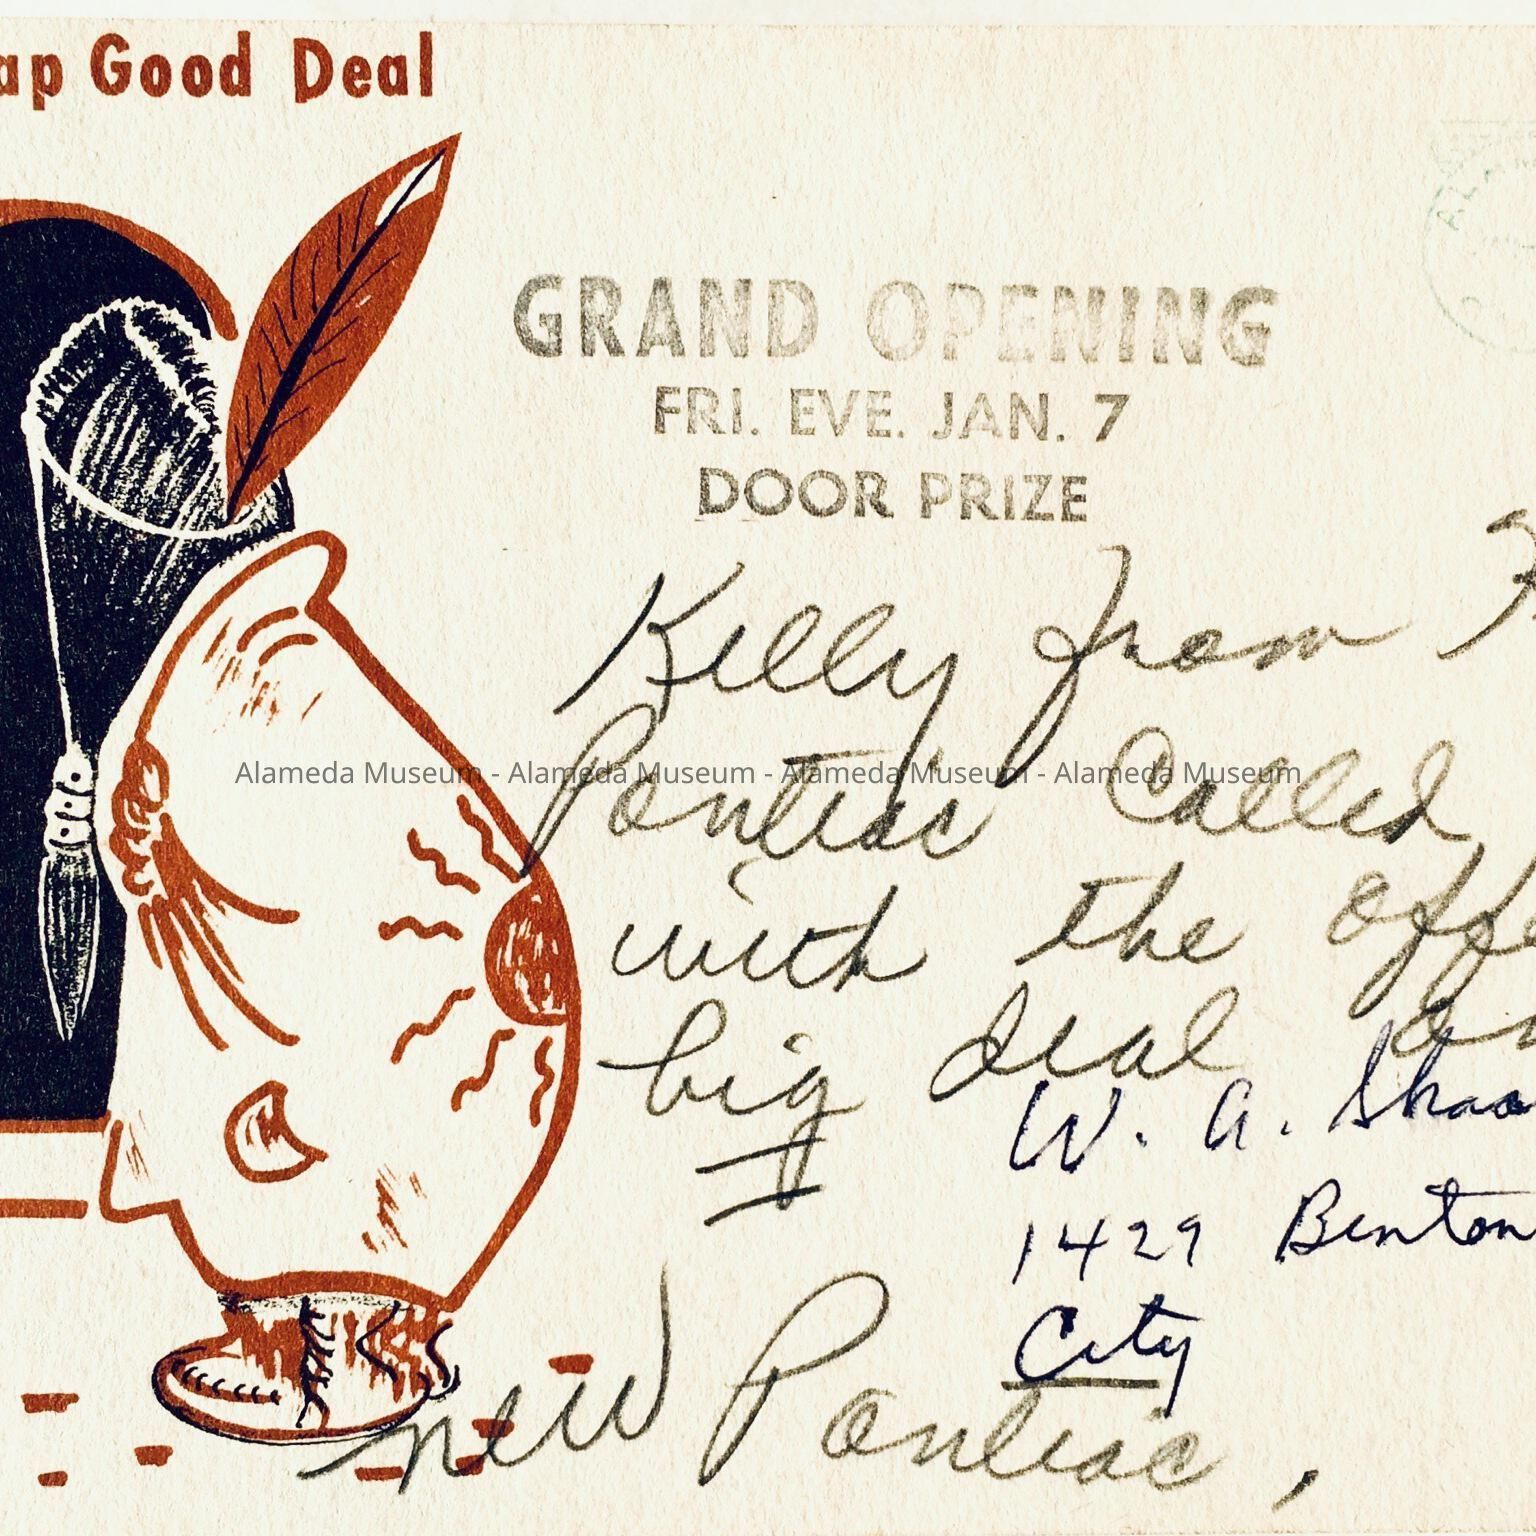 ap Good Deal
GRAND OPENING
FRI. EVE. JAN. 7
DOOR PRIZE
Kelly from
Pontiac Called
Alameda Museum - Alameda Museum - Alameda Museum - Alameda Museum
with the offe
big deal on
W. A. Shaa
1429 Benton
City
new Pontiac,